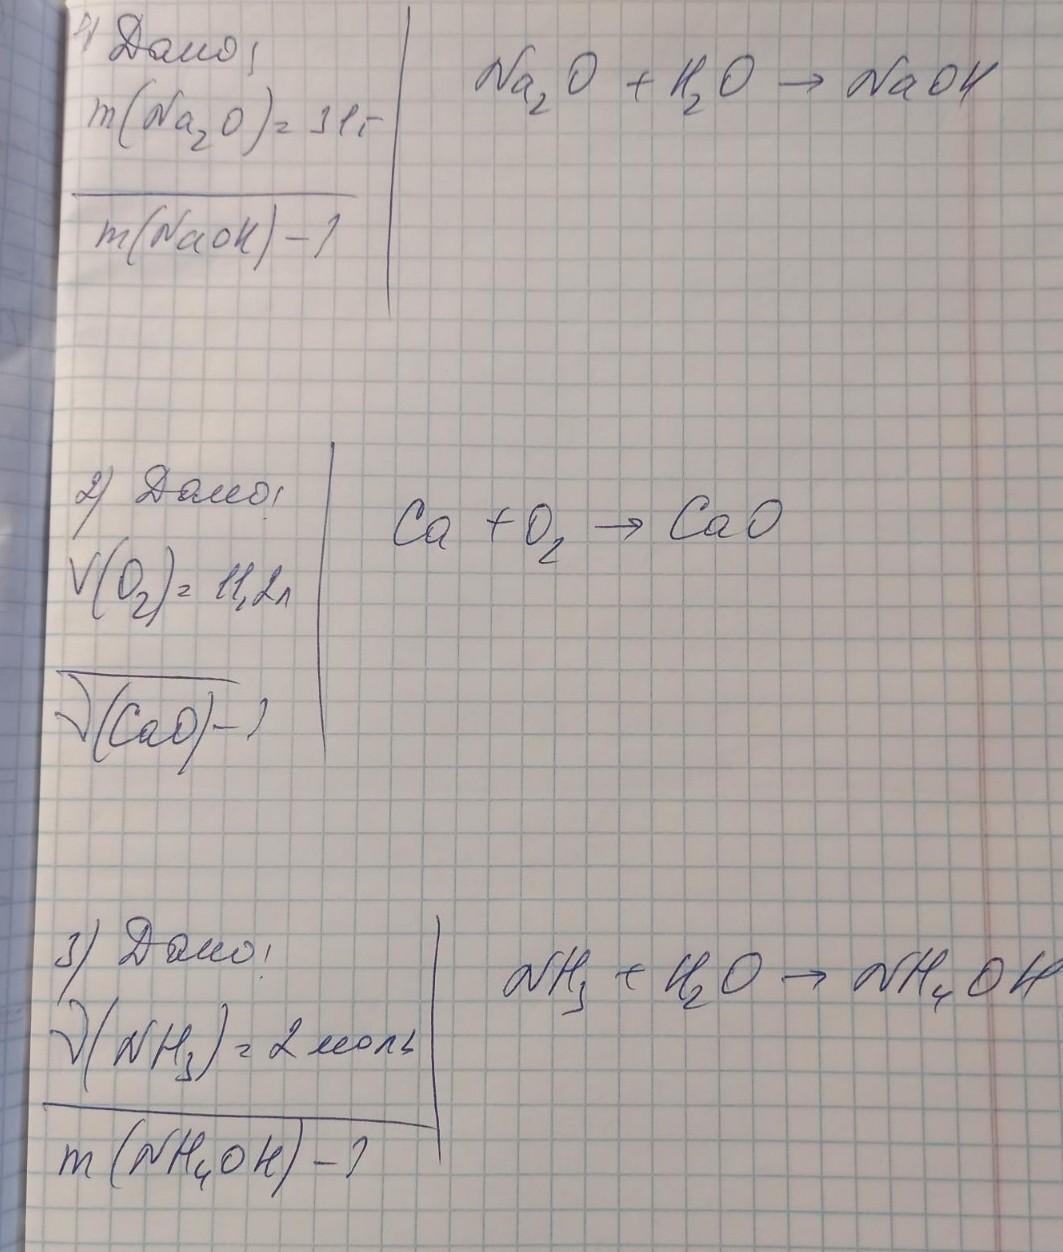 1) Дано:
m(Na₂O) = 31г
m(NaOH) - ?
Na₂O + H₂O → NaOH
2) Дано:
V(O₂) = 11,2л
ν(CaO) - ?
Ca + O₂ → CaO
3) Дано:
ν(NH₃) = 2 моль
m(NH₄OH) - ?
NH₃ + H₂O → NH₄OH